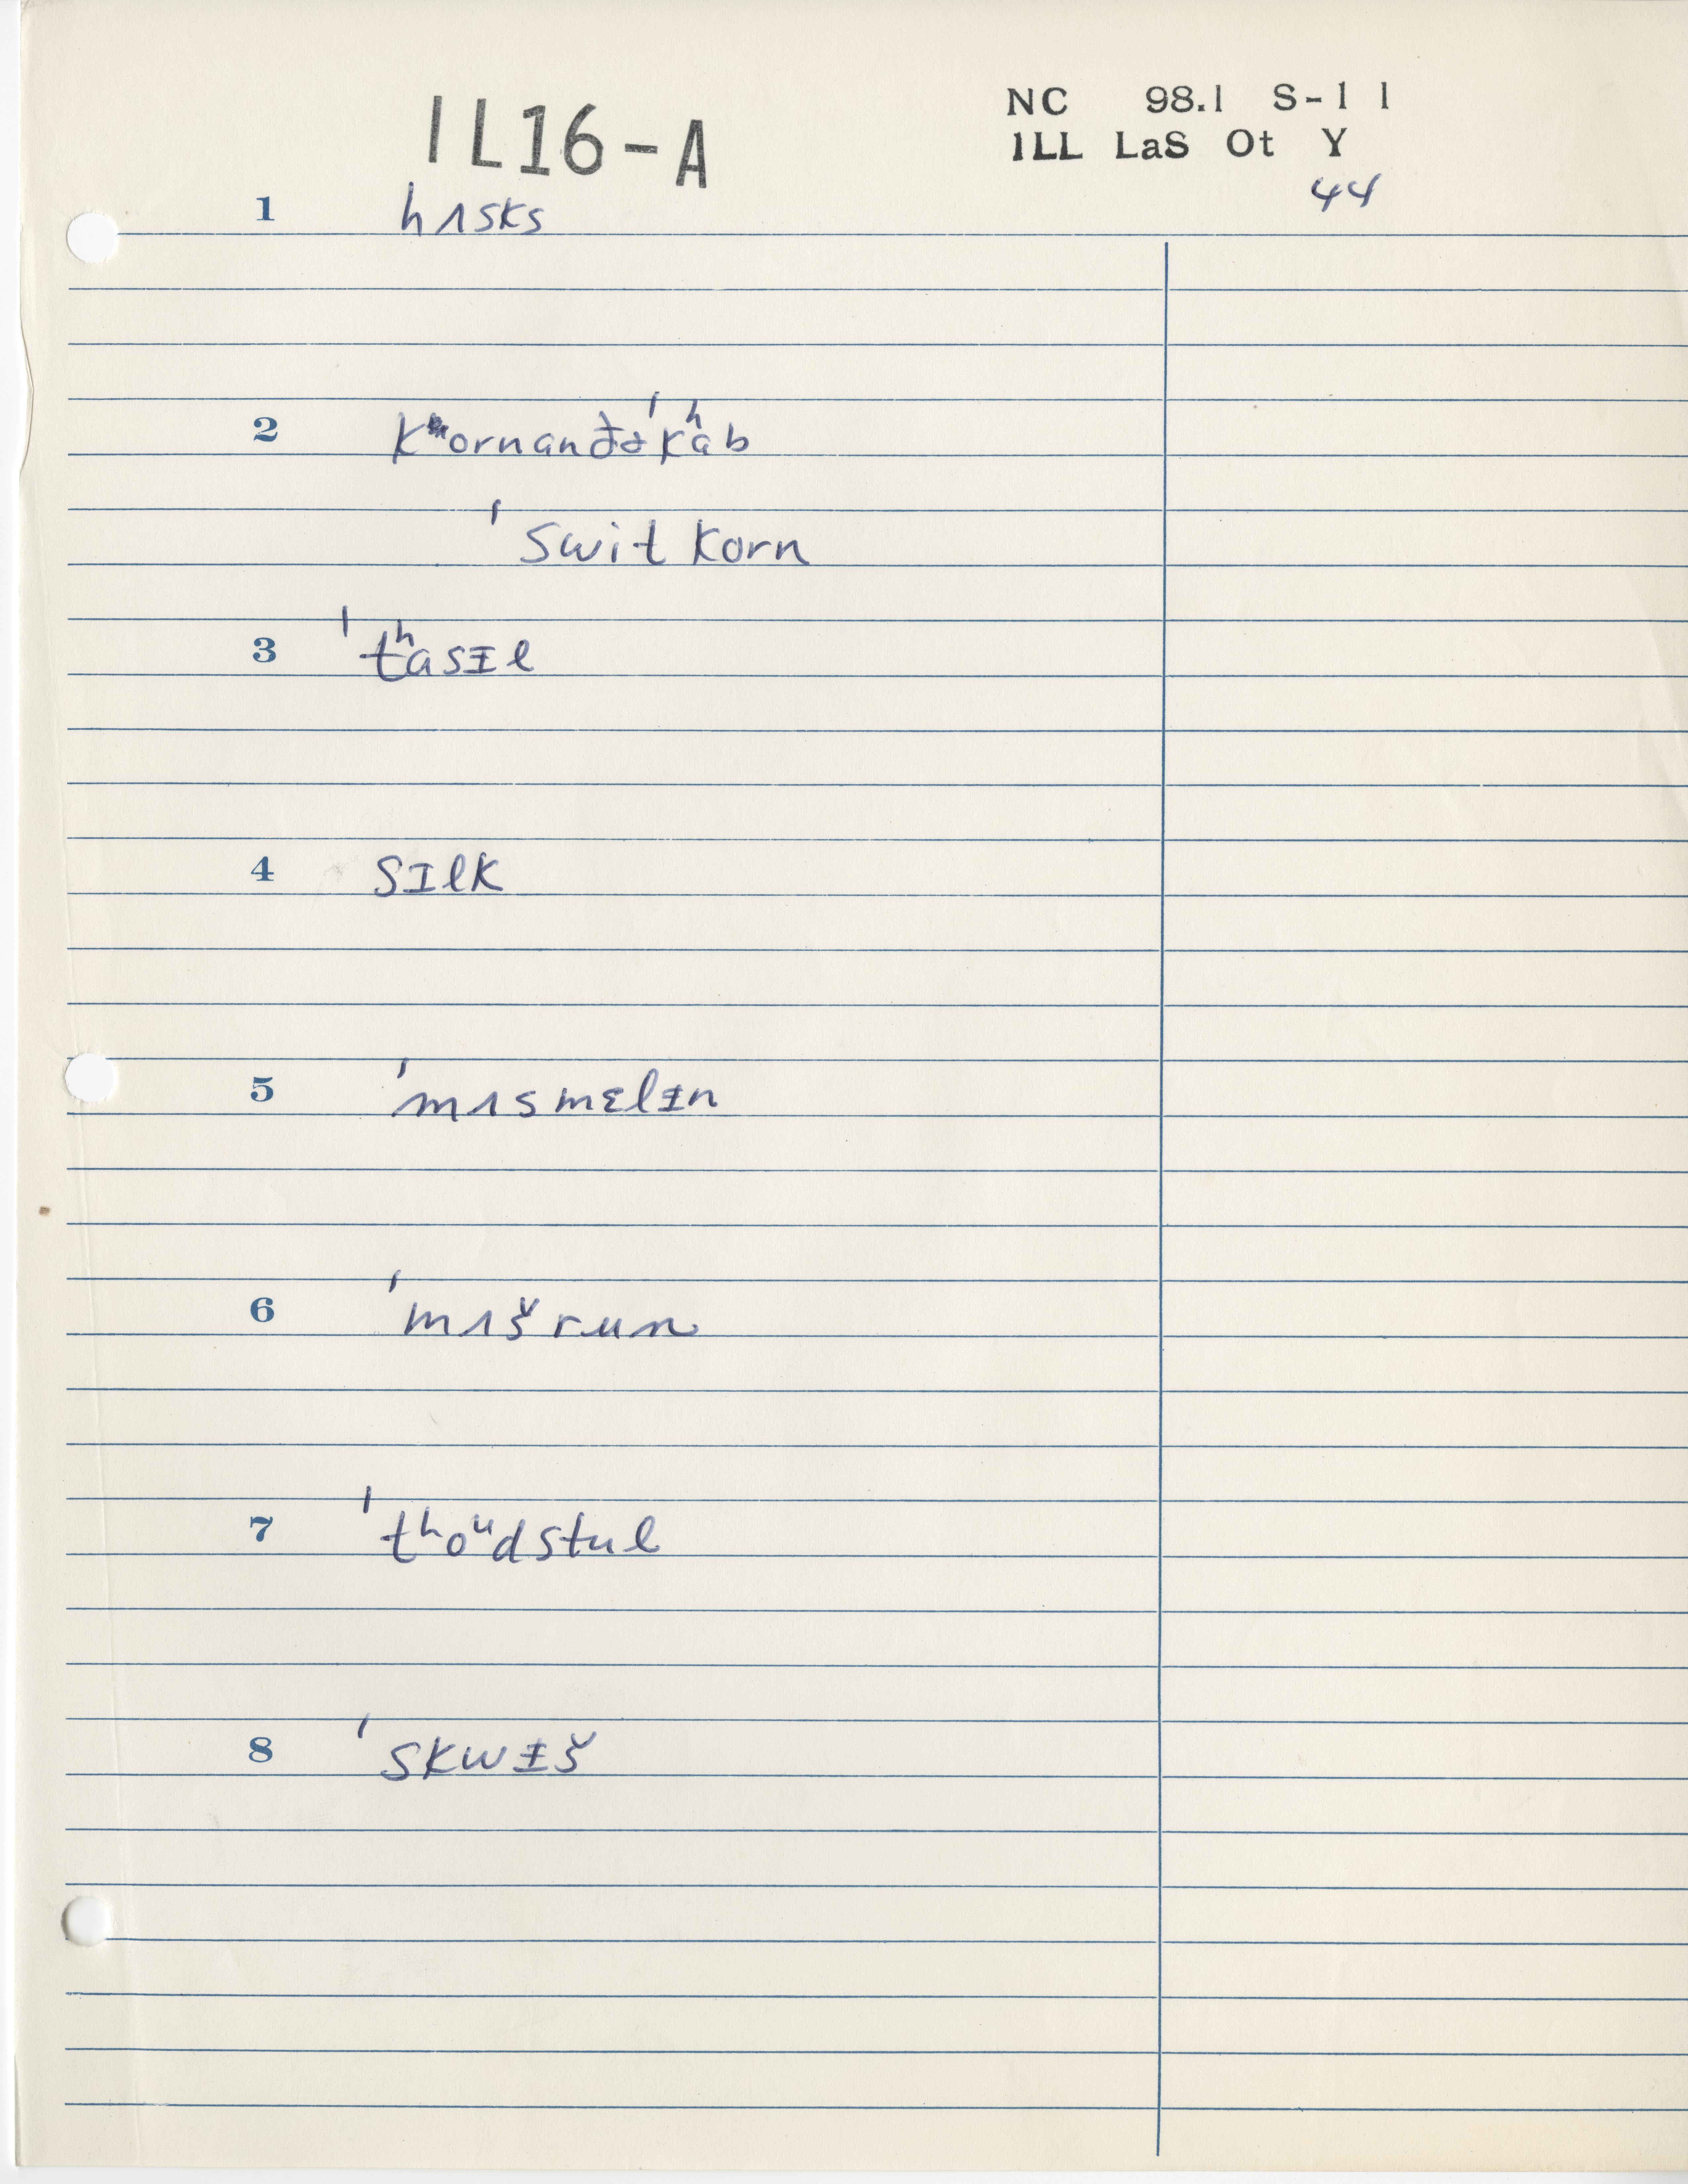 IL16-A
NC 98.1 S-1 1
ILL LaS Ot Y
44
1 hʌsks
2 kornanðəˈkʰab
ˈswit korn
3 ˈtʰasɪ̵l
4 sɪlk
5 ˈmʌsmɛlɪ̵n
6 ˈmʌšrun
7 ˈtʰoᵘdstul
8 ˈskwɪ̵š